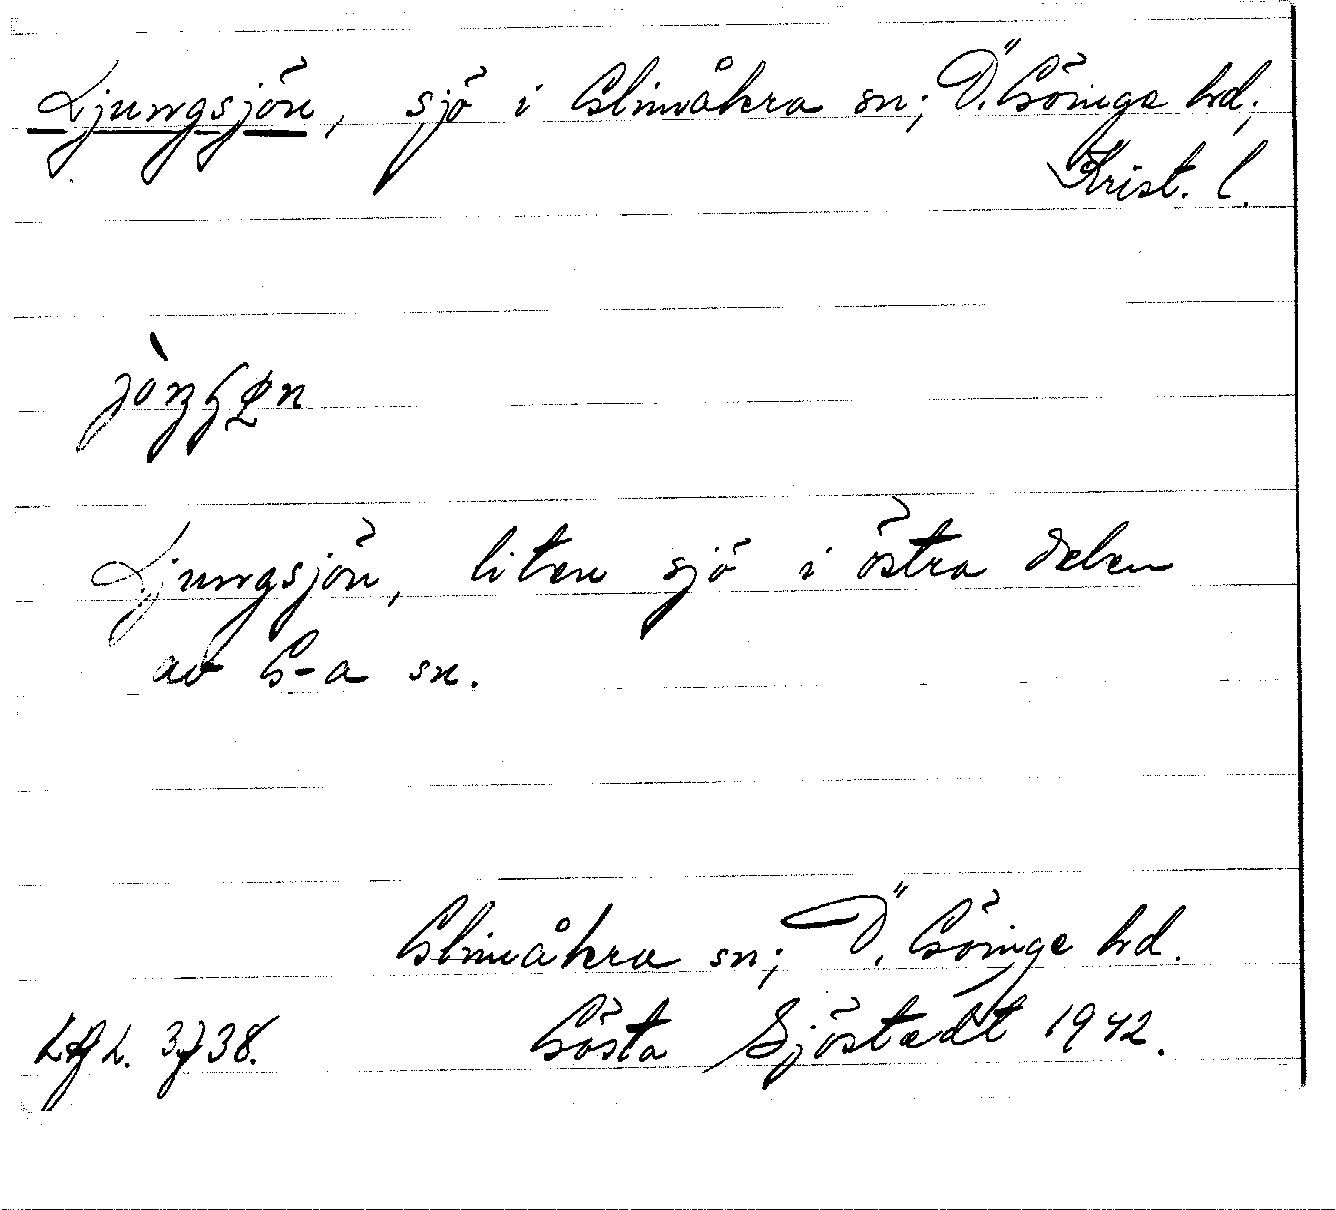 Ljungsjön, sjö i Glimåkra sn; Ö. Göinge hd,
Krist. l.
Ljungsjön, liten sjö i östra delen
av G-a sn.
Glimåkra sn; Ö. Göinge hd.
Gösta Sjöstedt 1942.